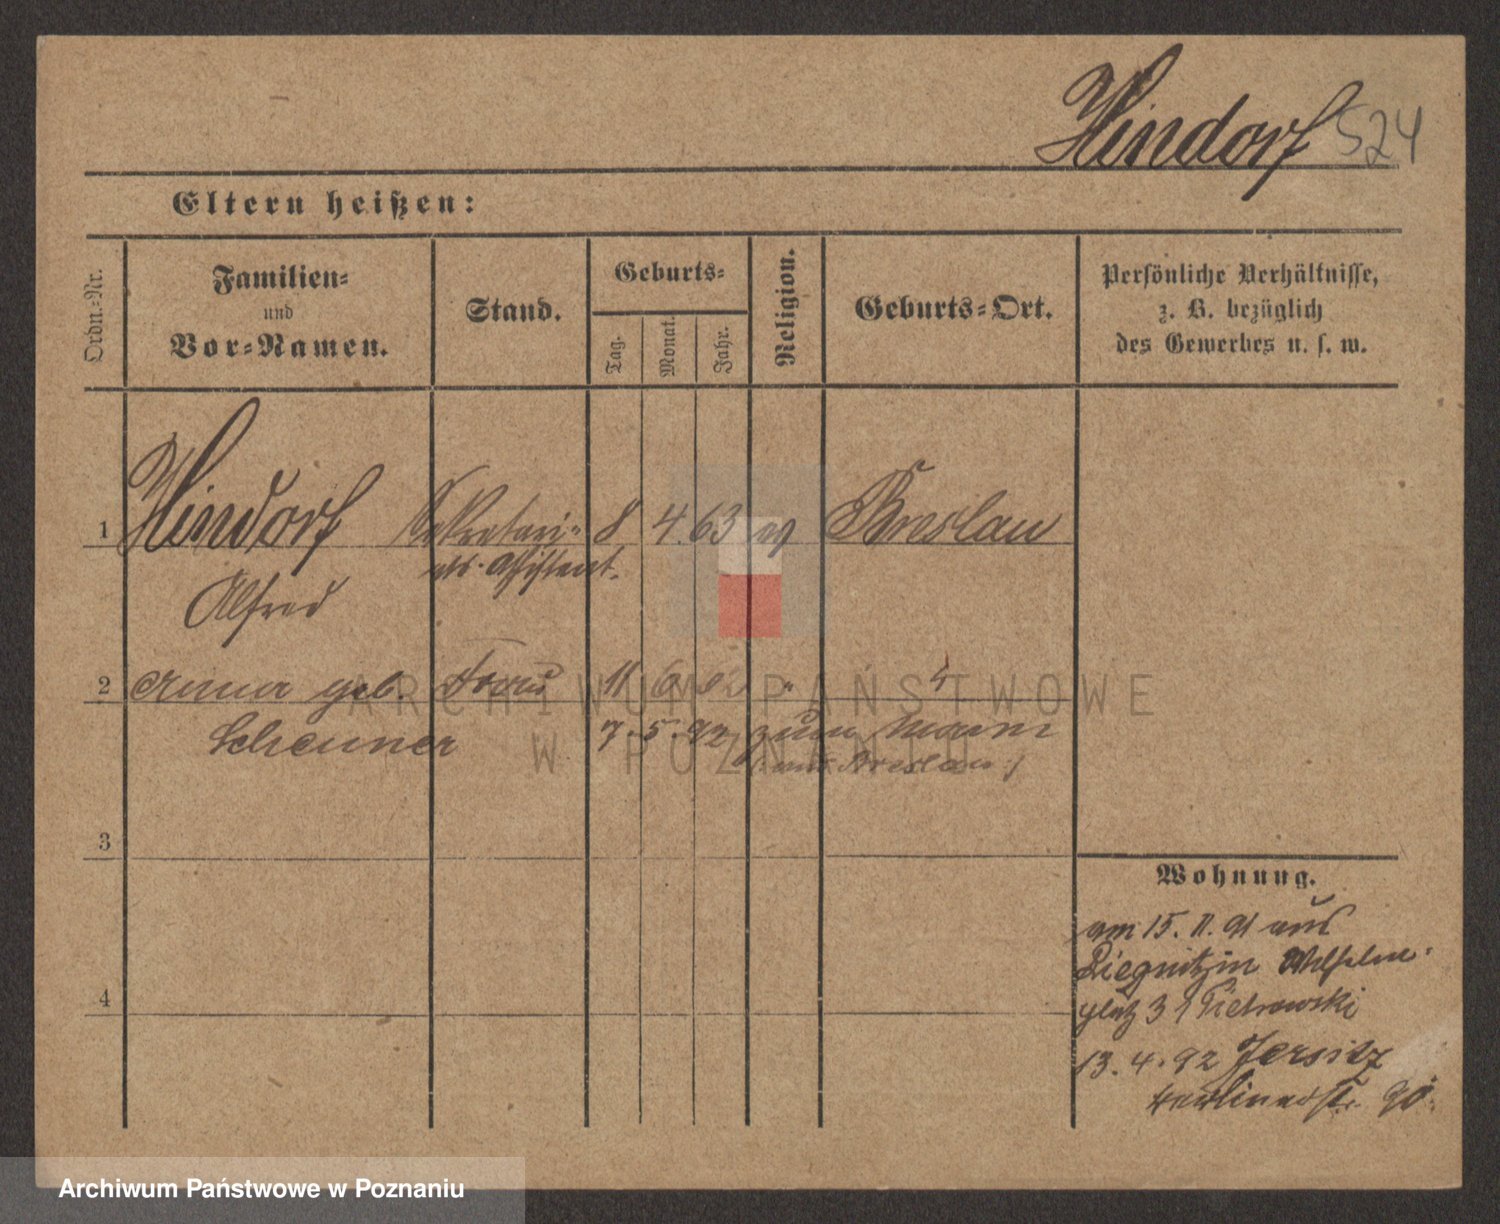 Hindorf 524
Eltern heißen:
Ordn.-Nr.
Familien-
und
Vor-Namen.
Stand.
Geburts-
Tag.
Monat.
Jahr.
Religion.
Geburts-Ort.
Persönliche Verhältnisse,
z. B. bezüglich
des Gewerbes u. s. w.
1 Hindorf Sekretari- 8 4. 63 ev Breslau
ats-Assistent.
Alfred
2 Anna geb. Frau 11 6 62 "
Scheuner 7. 5. 92 zum Mann
aus Breslau
3
4
Wohnung.
am 15. 11. 91 aus
Liegnitz in Wilhelm-
platz 3 Pietrowski
13. 4. 92 Jersitz
Berlinerstr.
ARCHIWUM PAŃSTWOWE
W POZNANIU
Archiwum Państwowe w Poznaniu